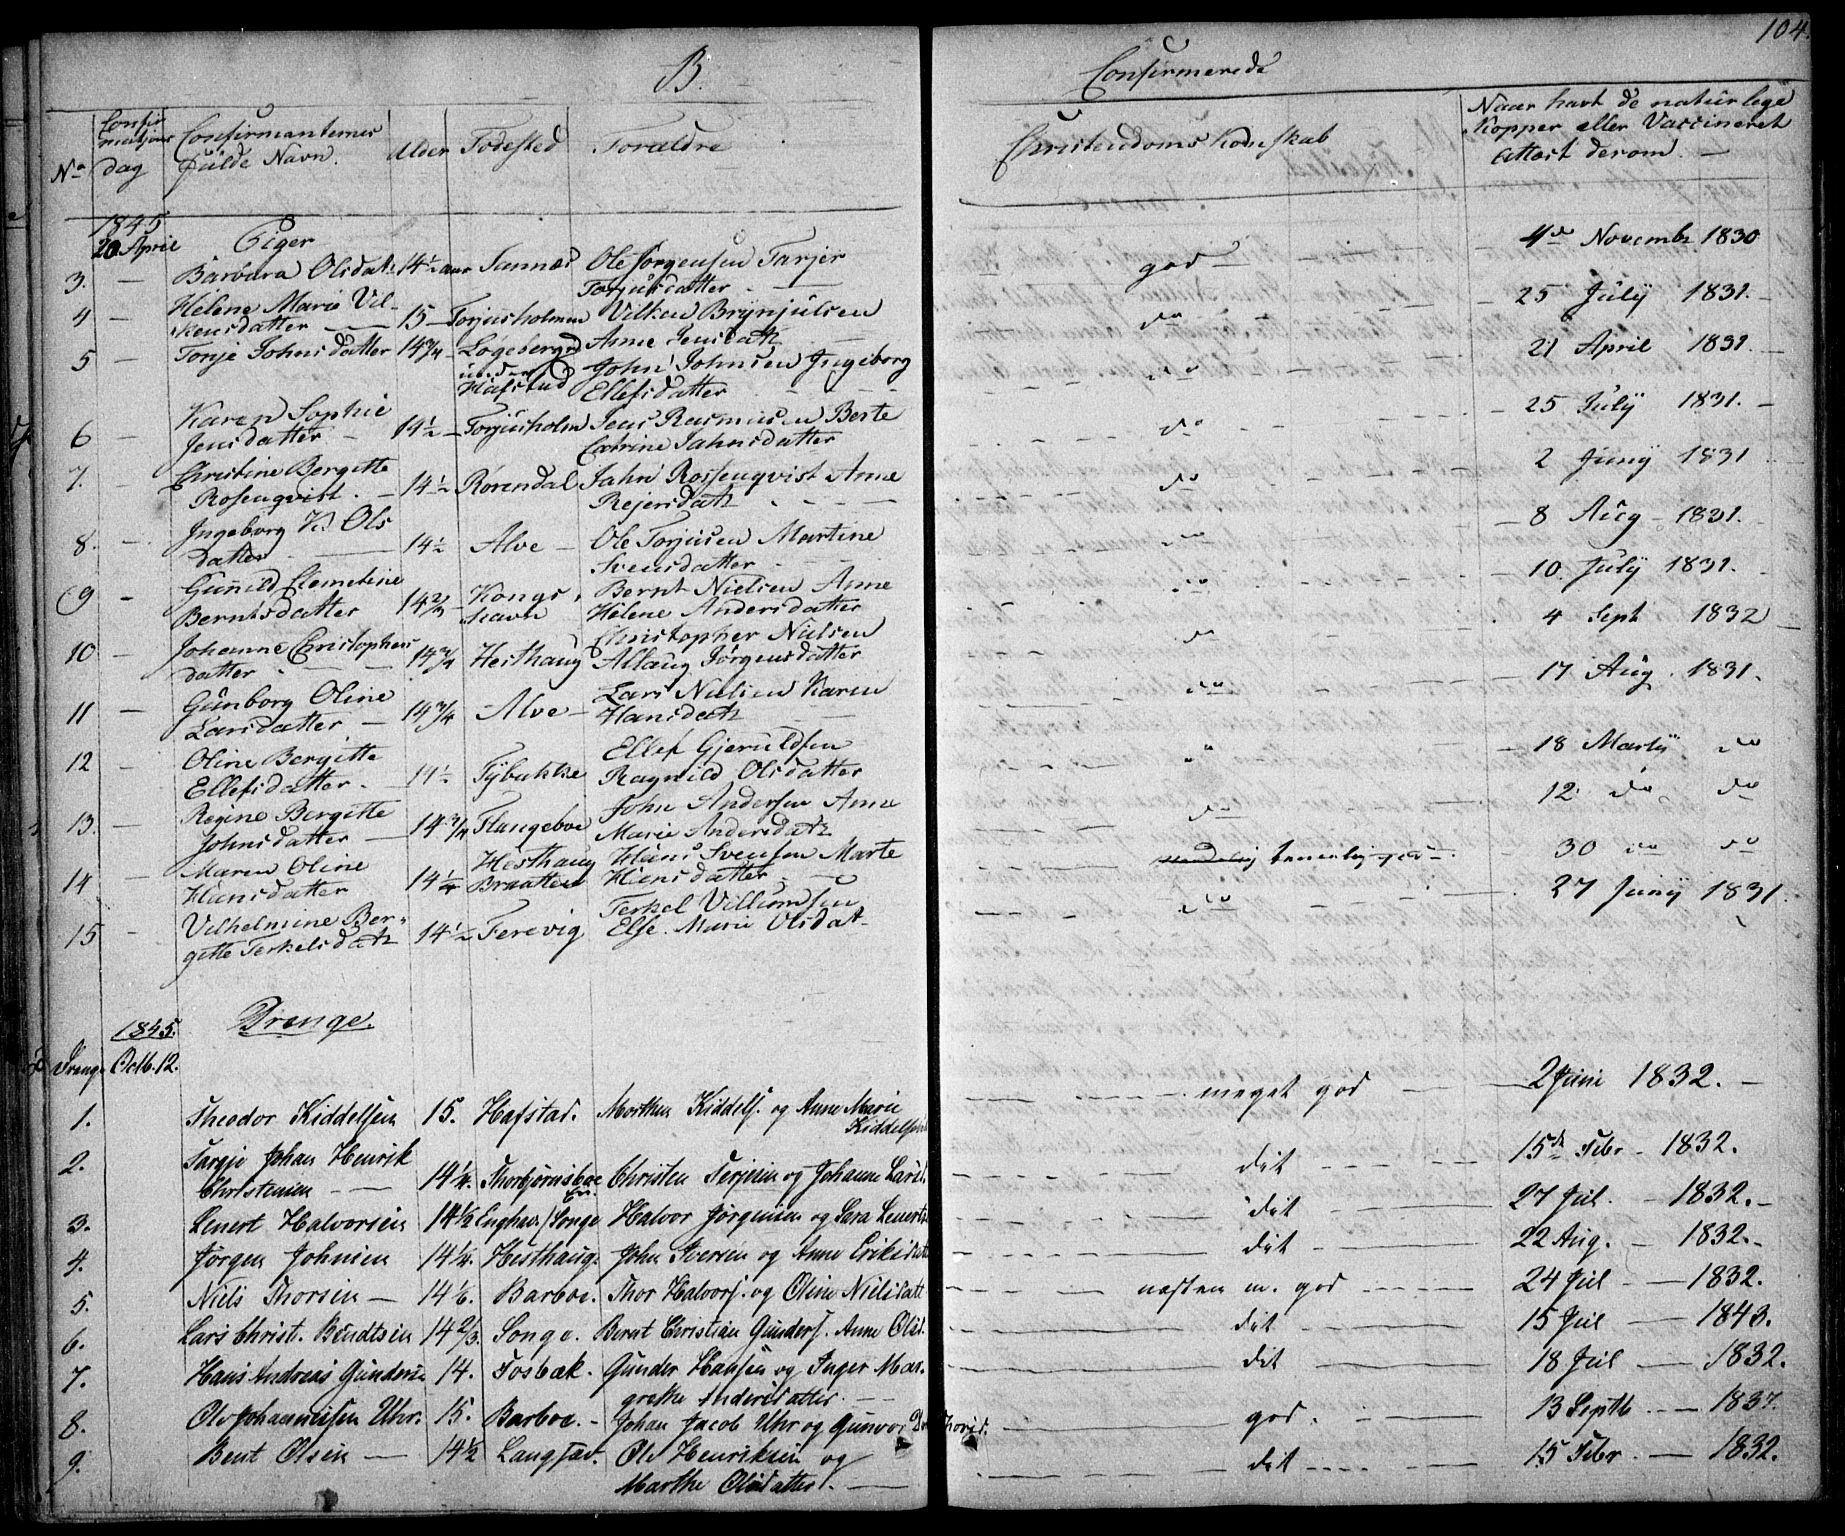 104.
B.
Confirmerede
No
Confir
mations
dag
Confirmanternes
fulde Navn.
Alder
Fødested
Forældre
Christendoms Kondskab
Naar havt de naturlege
Kopper eller Vaccineret
Attest derom. —
1845
20 April
Piger
3. — Barbara Olsdatr 14½ aar Sannæs Ole Jørgensen Tarjer
Torjusdatter. — god — 4de Novembr 1830
4 — Helene Marie Vil-
kensdatter — 15 — Torjusholmen Vilken Brynjulsen
Anne Jensdatr — do — 25 July 1831. —
5 — Tonje Johnsdatter 14¾ — Logebergd
under
Hafstad John Johnsen Ingeborg
Ellefsdatter — do — 21 April 1831. —
6 — Karen Sophie
Jensdatter — 14½ — Torjusholm Jens Rasmusen Berte
Catrine Jahnsdatter — do — 25 July 1831. —
7. — Christine Bergitte
Rosenqvist. — 14½ Rørendal Jahn Rossenqvist Anne
Rejersdatr — do — 2 Juny 1831
8. — Ingeborg K. Ols
datter — 14½ Alve — Ole Torjusen Martine
Svensdatter — do — 8 Aug 1831. —
9 — Gunild Clemetine
Berntsdatter 14⅔ Kongs-
havn Bernt Nielsen Anne
Helene Andersdatter — do — 10. July 1831. —
10 — Johanne Christophers
datter 14¾ Hesthaug Christopher Nielsen
Allaug Jørgensdatter — do — 4 Sept 1832
11 — Gunborg Oline
Larsdatter — 14¾ Alve — Lars Nielsen Karen
Hansdatr — do — 17 Aug. 1831.
12 — Oline Bergitte
Ellefsdatter. — 14½ Tybukke Ellef Gjeruldsen
Ragnild Olsdatter " — 18 Marty do
13. — Regine Bergitte
Johnsdatter — 14¾ Flangeboe John Andersen Anne
Marie Andersdatr — do — 12. do do
14 — Maren Oline
Hansdatter 14¼ Hesthaug
Braatten Hans Svensen Marte
Hansdatter — temelig god — 30 do do
15 — Vilhelmine Ber-
gitte Terkelsdatr 14½ Ferevig Terkel Villumsen
Else Marie Olsdat — do — 27 Juny 1831.
1845.
Drenge.
Drenge Octb. 12.
1. Theodor Kiddelsen 15. Hafstad. Morthen Kiddels. og Anne Marie
Kiddelsd — meget god — 2 Juni 1832. —
2. Tarje Johan Henrik
Christensen — 14¼. Thorbjørnsboe Christen Terjesen og Johanne Larsd. — dit — 15de Febr — 1832.
3. Lenert Halvorsen 14½ Enghav./Songe Halvor Jørgensen og Sara Lenertsd — dit — 27 Jul. — 1832. —
4. Jørgen Johnsen 14¼. Hesthaug. John Iversen og Anne Eriksdatt — dit — 22 Aug. — 1832. —
5. Niels Thorsen — 14⅙. Barboe. Thor Halvors. og Oline Nielsdatt — næsten m. god — 24 Jul — 1832.
6. Lars Christ. Bendtsen 14⅔. Songe. Bernt Christian Gunders. Anne Olsd. — dit — 15 Jul — 1843.
7. Hans Andreas Gunderse 14. Fosbæk. Gunder Hansen og Inger Mar-
grethe Andersdatter. — dit — 18 Jul — 1832.
8. Ole Johannesen Uhr. 15. Barboe. — Johan Jacob Uhr og Gunvor Thorsd. — god. — 13 Septb — 1837.
9. Bent Olsen — 14½ Langsæ. Ole Henriksen og
Marthe Olsdatter. — dit — 15 Febr — 1832.